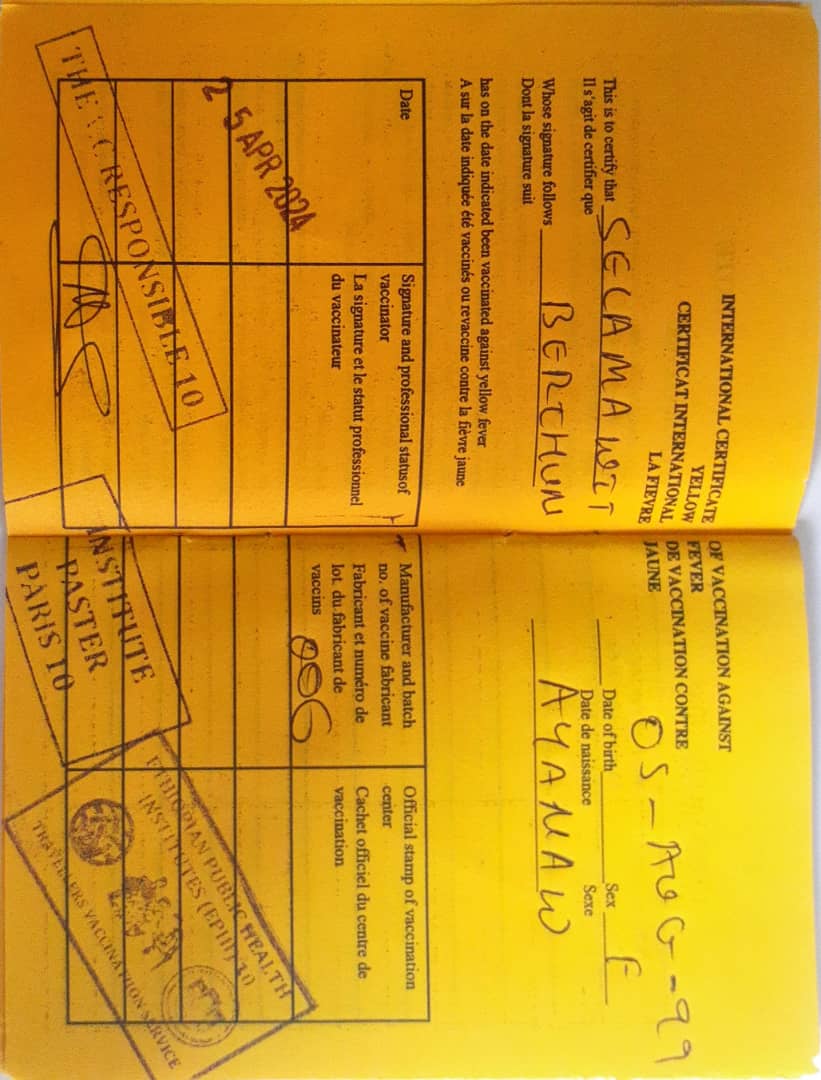 INTERNATIONAL CERTIFICATE OF VACCINATION AGAINST
YELLOW FEVER
CERTIFICAT INTERNATIONAL DE VACCINATION CONTRE
LA FIEVRE JAUNE
05-AUG-99
This is to certify that SELAMAWIT Date of birth Sex F
Il s'agit de certifier que Date de naissance Sexe
Whose signature follows BERCHUN AYANAW
Dont la signature suit
has on the date indicated been vaccinated against yellow fever
A sur la date indiquée été vaccinés ou revaccine contre la fièvre jaune
Date
Signature and professional statusof
vaccinator
La signature et le statut professionnel
du vaccinateur
Manufacturer and batch
no. of vaccine fabricant
Fabricant et numéro de
lot. du fabricant de
vaccins
Official stamp of vaccination
center
Cachet officiel du centre de
vaccination
006
25 APR 2024
THE RESPONSIBLE 10
INSTITUTE
PASTER
PARIS 10
ETHIOPIAN PUBLIC HEALTH
INSTITUTES (EPHI) 10
TRAVELLERS VACCINATION SERVICE